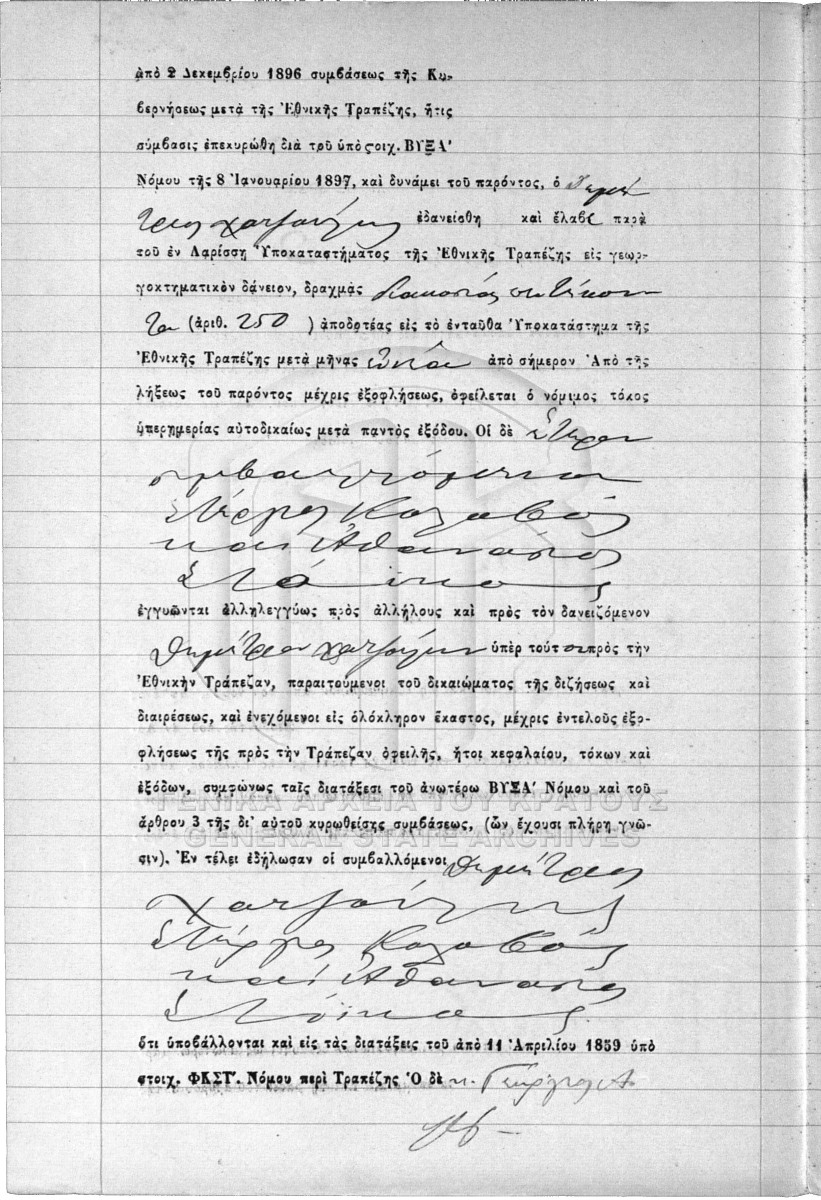 ἀπὸ 2 Δεκεμβρίου 1896 συμβάσεως τῆς Κυ-
βερνήσεως μετὰ τῆς Ἐθνικῆς Τραπέζης, ἥτις
σύμβασις ἐπεκυρώθη διὰ τοῦ ὑπὸ στοιχ. ΒΥΞΑ'
Νόμου τῆς 8 Ἰανουαρίου 1897, καὶ δυνάμει τοῦ παρόντος, ὁ Δημή
τριος Χατζούλης ἐδανείσθη καὶ ἔλαβε παρὰ
τοῦ ἐν Λαρίσσῃ Ὑποκαταστήματος τῆς Ἐθνικῆς Τραπέζης εἰς γεωρ-
γοκτηματικὸν δάνειον, δραχμὰς διακοσίας πεντήκον
τα (ἀριθ. 250 ) ἀποδοτέας εἰς τὸ ἐνταῦθα Ὑποκατάστημα τῆς
Ἐθνικῆς Τραπέζης μετὰ μῆνας ἀπὸ σήμερον Ἀπὸ τῆς
λήξεως τοῦ παρόντος μέχρις ἐξοφλήσεως, ὀφείλεται ὁ νόμιμος τόκος
ὑπερημερίας αὐτοδικαίως μετὰ παντὸς ἐξόδου. Οἱ δὲ ἕτεροι
συμβαλλόμενοι
Στέργιος Καλαβός
καὶ Ἀθανάσιος
ἐγγυῶνται ἀλληλεγγύως πρὸς ἀλλήλους καὶ πρὸς τὸν δανειζόμενον
Δημήτριον Χατζούλην ὑπὲρ τούτου πρὸς τὴν
Ἐθνικὴν Τράπεζαν, παραιτούμενοι τοῦ δικαιώματος τῆς διζήσεως καὶ
διαιρέσεως, καὶ ἐνεχόμενοι εἰς ὁλόκληρον ἕκαστος, μέχρις ἐντελοῦς ἐξο-
φλήσεως τῆς πρὸς τὴν Τράπεζαν ὀφειλῆς, ἤτοι κεφαλαίου, τόκων καὶ
ἐξόδων, συμφώνως ταῖς διατάξεσι τοῦ ἀνωτέρω ΒΥΞΑ' Νόμου καὶ τοῦ
ΓΕΝΙΚΑ ΑΡΧΕΙΑ ΤΟΥ ΚΡΑΤΟΥΣ
ἄρθρου 3 τῆς δι' αὐτοῦ κυρωθείσης συμβάσεως, (ὧν ἔχουσι πλήρη γνῶ-
GENERAL STATE ARCHIVES
σιν). Ἐν τέλει ἐδήλωσαν οἱ συμβαλλόμενοι Δημήτριος
Χατζούλης
Στέργιος Καλαβός
καὶ Ἀθανάσιος
ὅτι ὑποβάλλονται καὶ εἰς τὰς διατάξεις τοῦ ἀπὸ 11 Ἀπριλίου 1859 ὑπὸ
στοιχ. ΦΚΣΤ'. Νόμου περὶ Τραπέζης Ὁ δὲ κ. Γεώργιος Α